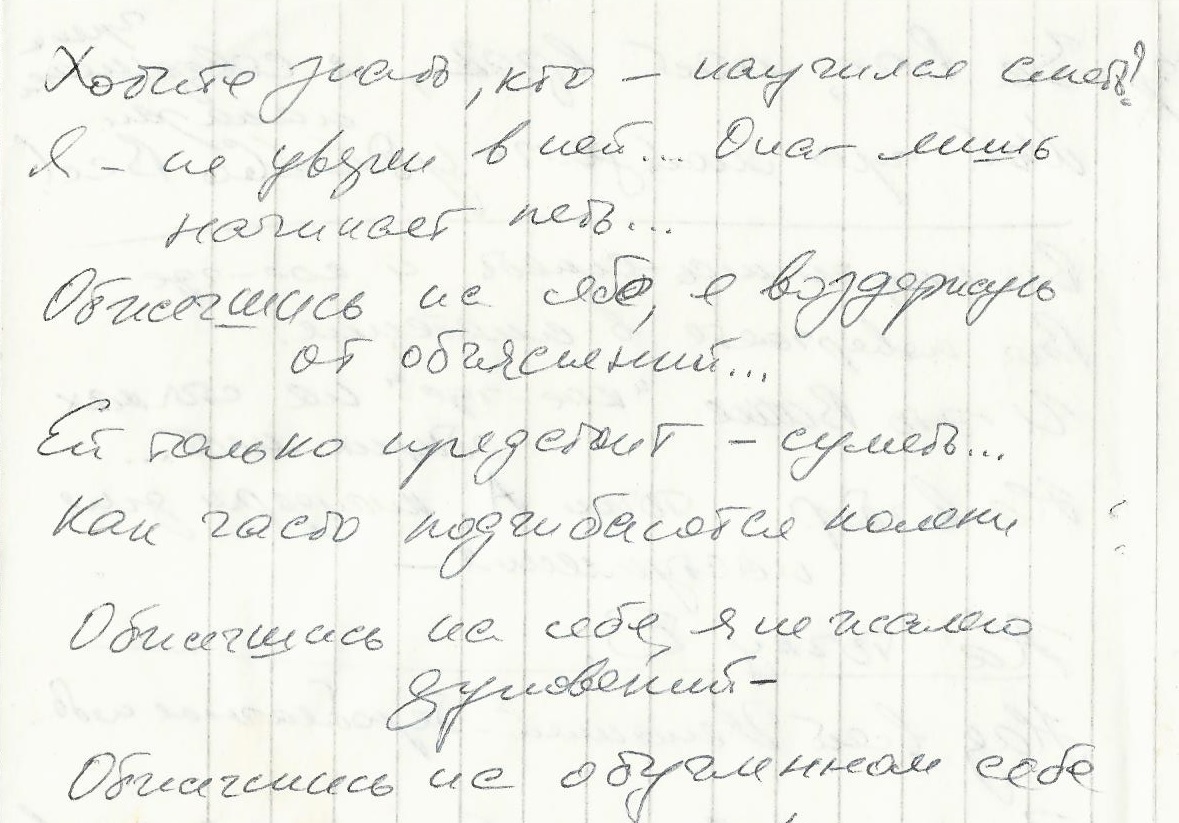 Хотите знать, кто – научился сметь?
Я – не уверен в ней... Она – лишь
начинает петь...
Обжегшись на себе, я воздержусь
от объяснений...
Ей только предстоит – суметь...
Как часто подгибаются колени
Обжегшись на себе, я не жалею
дуновений –
Обжегшись на обугленном себе